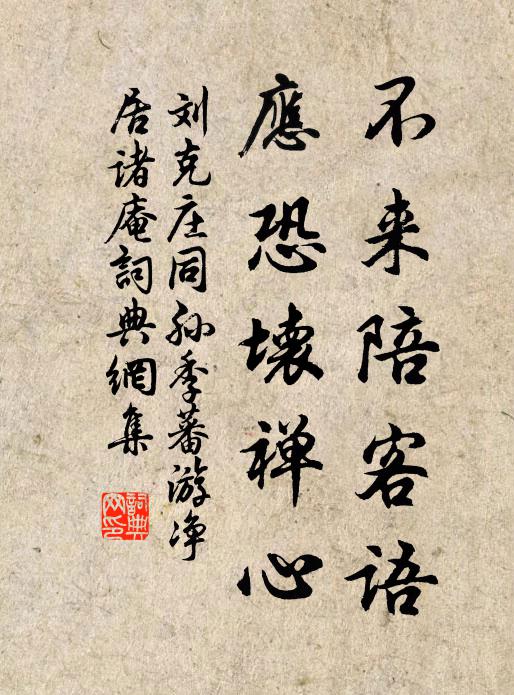 不来陪客語
應恐壊禅心
刘克庄同孙季蕃游净
居诸庵詞典網集
詞典
网印